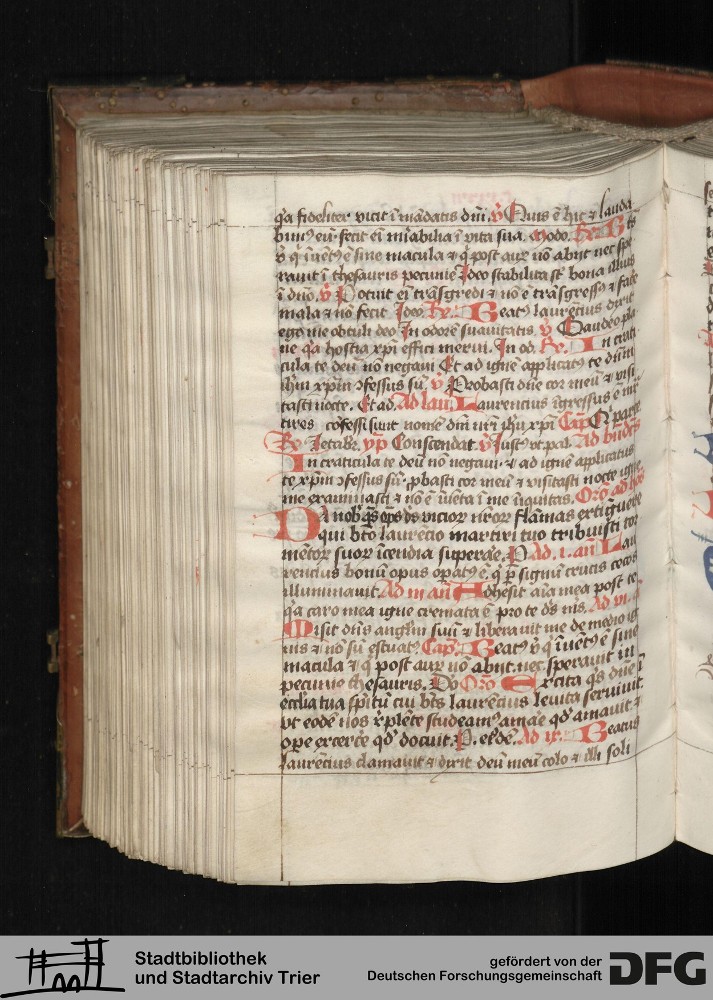 q̄a fideliter vixit ī mādatis dnī. v̄ Quis ē hic ⁊ lauda
bimꝰ eū fecit eī mirabilia ī vita sua. Modo. Re. Btꝰ
v̄ q̇ īuētꝰ ē sine macula ⁊ q̇ post aurū nō abijt nec spe
rauit ī thesauris pecunie Ideo stabilita st̄ bona illius
ī dn̄o. v̄ Potuit eī trāsgredi ⁊ nō ē trāsgressꝰ ⁊ face
mala ⁊ nō fecit Ideo. Re. Beatꝰ laurēcius dixit
ego me obtuli deo. In odorē suauitatis. v̄ Gaudeo pla
ne q̄a hostia xp̄i effici merui. In od. Re. In crati
cula te deū nō negaui Et ad ignē applicatꝰ te dn̄m
ihm̄ xp̄m ꝯfessus sū. v̄ Probasti dn̄e cor meū ⁊ visi
tasti nocte. Et ad. Ad lau. Laurencius īgressus ē mr̄
tires confessi sunt nomē dn̄i nr̄i ihū xp̄i Cap. Q̇ parce
Re. Letabr̄. yp̄. Conscendat. v̄ Iustꝰ vt pal. Ad bn̄dcs
In craticula te deū nō negaui ⁊ ad ignē applicatus
te xp̄m ꝯfessus sū. ꝓbasti cor meū ⁊ visitasti nocte igne
me examinasti ⁊ nō ē īuēta ī me īiquitas. Oro ad hos
Da nob̄ qs̄ op̄s ds̄ vicioꝝ nr̄oꝝ flāmas extīguere
qui bt̄o laurēcio martiri tuo tribuisti tor
mētoꝝ suoꝝ īcendia suꝑare. P. Ad. i. an̄ Lau
rencius bonū opus opatꝰ ē. q̇ ꝑ signū crucis cecos
illuminauit. Ad iii an̄ Adhesit aīa mea post te
q̄a caro mea igne cremata ē pro te ds̄ ms̄. Ad vi. a
Misit dn̄s angłm suū ⁊ liberauit me de medio ig
nis ⁊ nō sū estuatꝰ Cap. Beatꝰ v̄ q̇ īuētꝰ ē sine
macula ⁊ q̇ post aurū nō abijt. nec. sperauit in
pecunie thesauris. Do Oro Excita qs̄ dn̄e ī
eccłia tua spm̄ cui bt̄s laurēcius leuita seruiuit
vt eodē nos repleti studeamꝰ amare qd̄ amauit ⁊
oꝑe exercere qd̄ docuit. P. eūdē. Ad ix. Beatus
laurēcius clamauit ⁊ dixit deū meū colo ⁊ illi soli
Stadtbibliothek
und Stadtarchiv Trier
gefördert von der
Deutschen Forschungsgemeinschaft
DFG